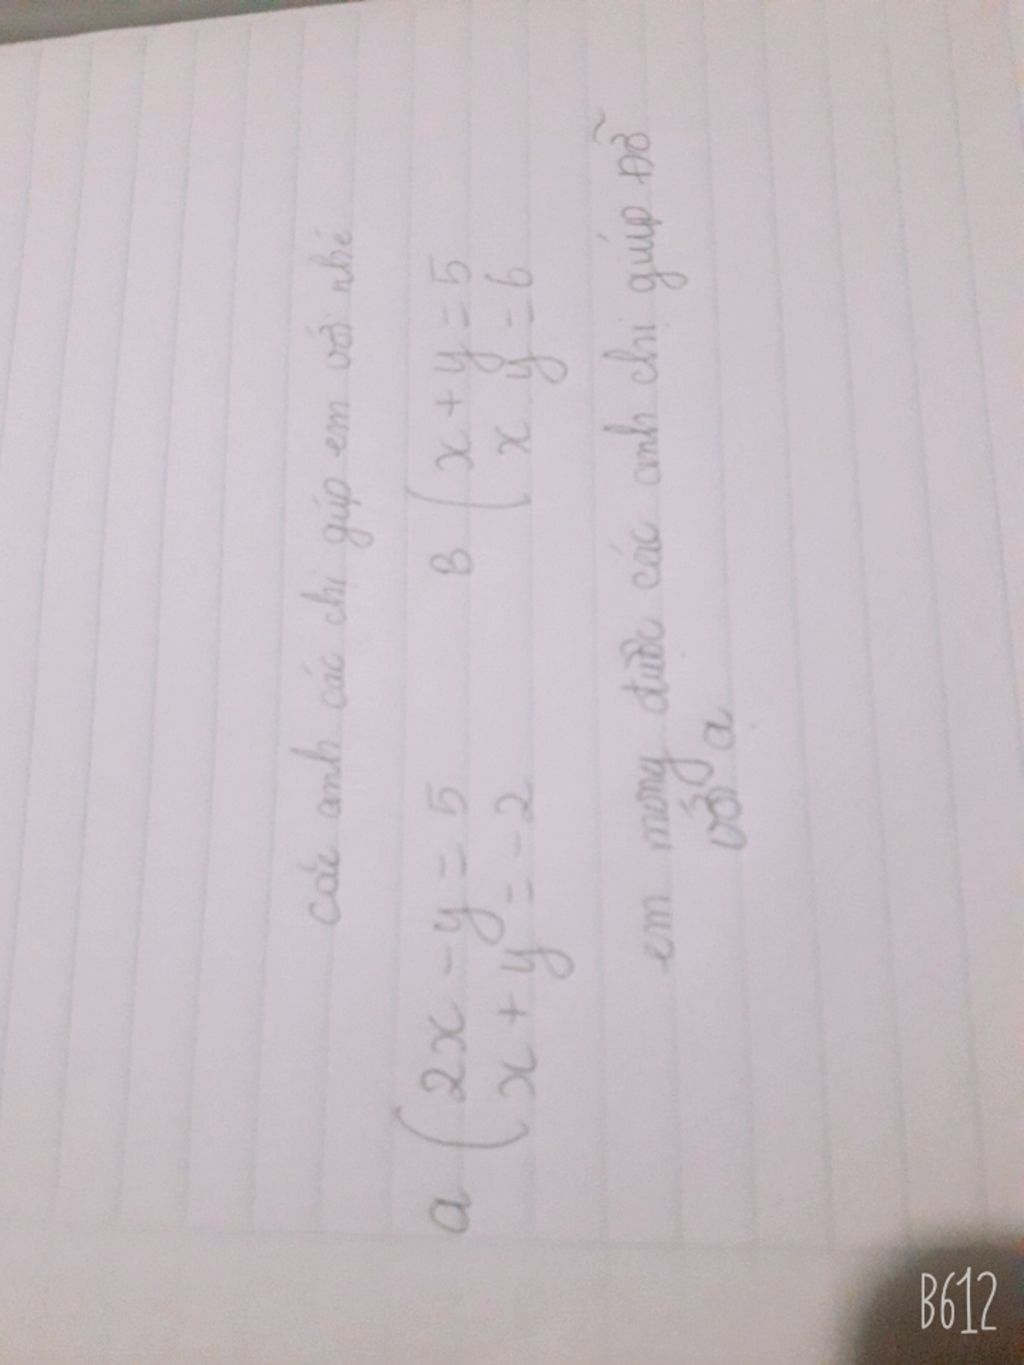 các anh các chị gíup em với nhé
a { 2x - y = 5 B { x + y = 5
x + y = -2 x y = 6
em mong được các anh chị giúp đỡ
với ạ
B612